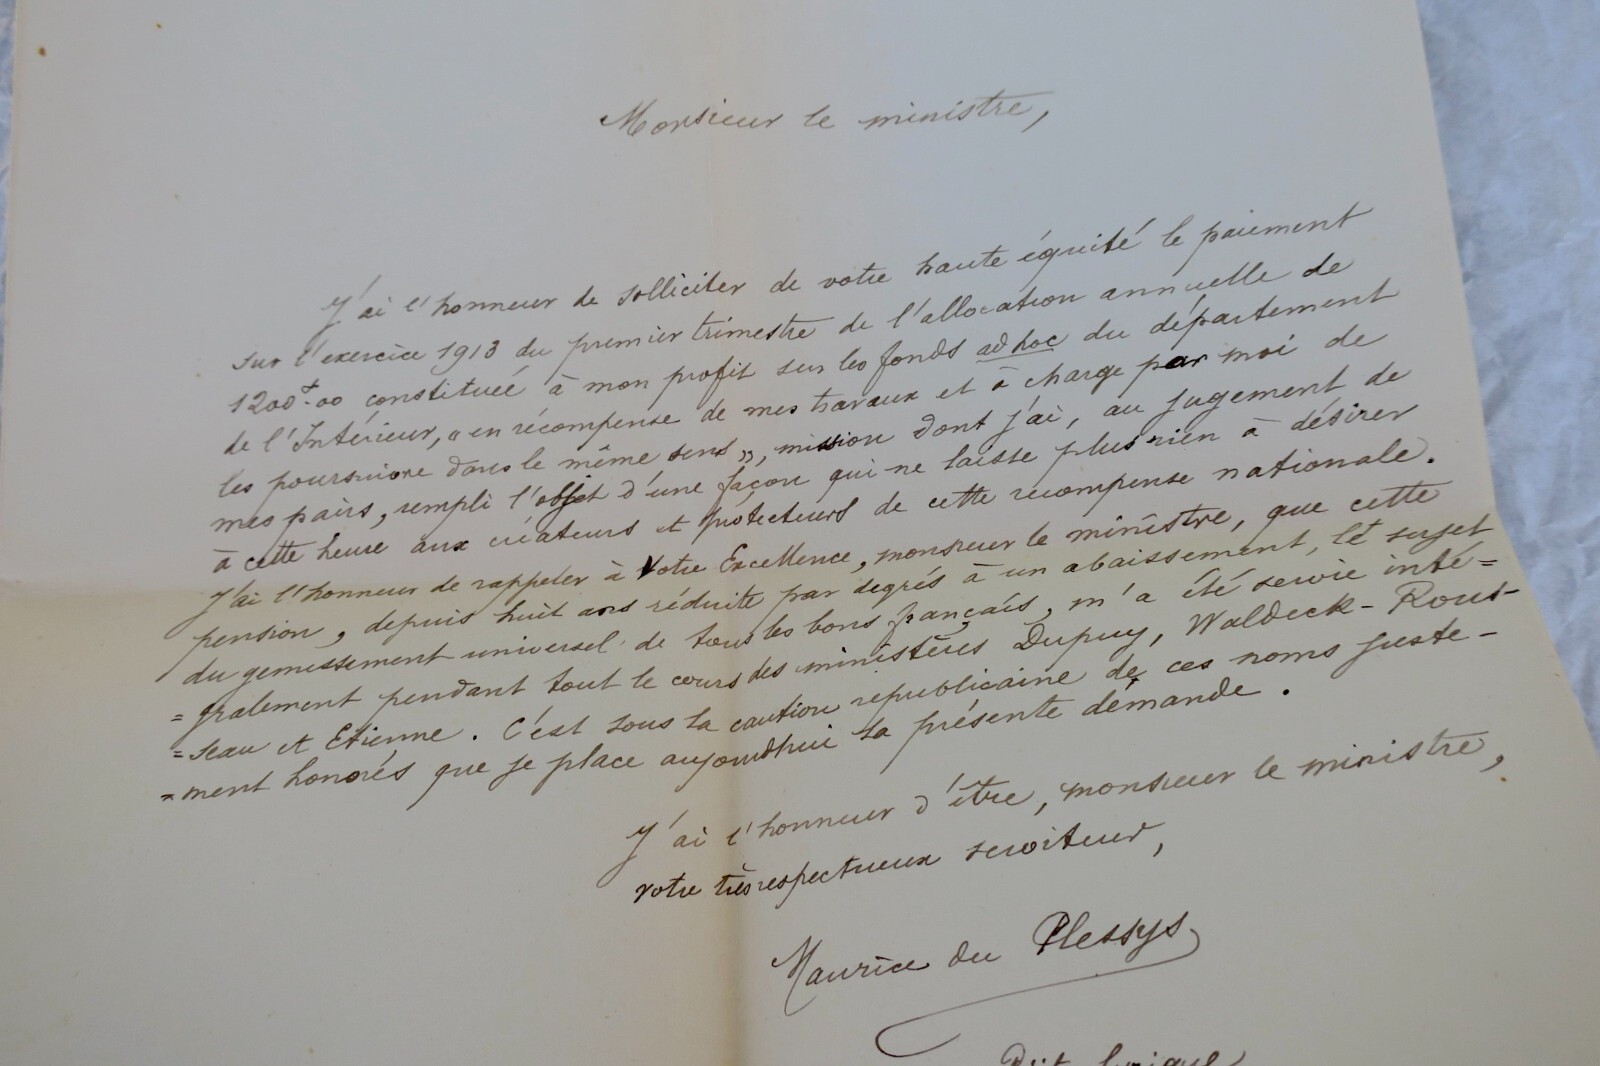 Monsieur le ministre,
J'ai l'honneur de solliciter de votre haute équité le paiement
sur l'exercice 1913 du premier trimestre de l'allocation annuelle de
1200f.00 constituée à mon profit sur les fonds ad hoc du département
de l'Intérieur, « en récompense de mes travaux et à charge par moi de
les poursuivre dans le même sens », mission dont j'ai, au jugement de
mes pairs, rempli l'objet d'une façon qui ne laisse plus rien à désirer
à cette heure aux créateurs et protecteurs de cette récompense nationale.
J'ai l'honneur de rappeler à Votre Excellence, monsieur le ministre, que cette
pension, depuis huit ans réduite par degrés à un abaissement, le sujet
du gémissement universel de tous les bons français, m'a été servie inté=
=gralement pendant tout le cours des ministères Dupuy, Waldeck-Rous-
=seau et Etienne. C'est sous la caution républicaine de ces noms juste-
=ment honorés que je place aujourd'hui la présente demande.
J'ai l'honneur d'être, monsieur le ministre,
votre très respectueux serviteur,
Maurice du Plessys
lyrique